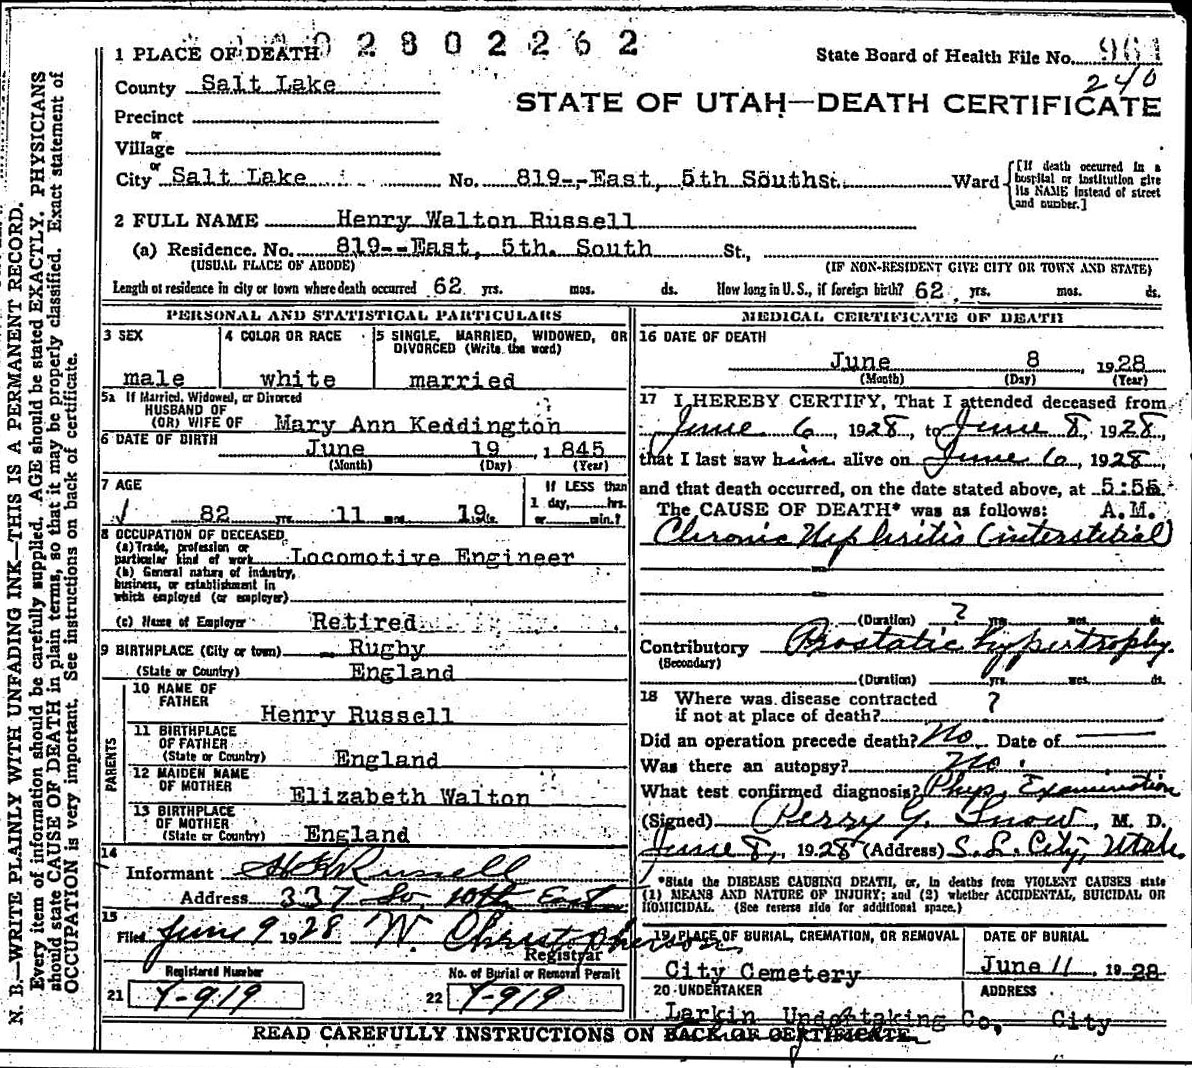 1 PLACE OF DEATH 02802262
State Board of Health File No. 961
240
County Salt Lake
STATE OF UTAH—DEATH CERTIFICATE
Precinct
or
Village
or
City Salt Lake No. 819--East, 5th South St. Ward
[If death occurred in a
hospital or institution give
its NAME instead of street
and number.]
2 FULL NAME Henry Walton Russell
(a) Residence. No. 819--East, 5th. South St.,
(USUAL PLACE OF ABODE) (IF NON-RESIDENT GIVE CITY OR TOWN AND STATE)
Length of residence in city or town where death occurred 62 yrs. mos. ds. How long in U.S., if foreign birth? 62 yrs. mos. ds.
PERSONAL AND STATISTICAL PARTICULARS
3 SEX
male
4 COLOR OR RACE
white
5 SINGLE, MARRIED, WIDOWED, OR
DIVORCED (Write the word)
married
5a If Married, Widowed, or Divorced
HUSBAND OF
(OR) WIFE OF Mary Ann Keddington
6 DATE OF BIRTH
June 19, 1845
(Month) (Day) (Year)
7 AGE
82 yrs. 11 mos. 19 ds.
If LESS than
1 day, hrs.
or min.?
8 OCCUPATION OF DECEASED
(a) Trade, profession or
particular kind of work Locomotive Engineer
(b) General nature of industry,
business, or establishment in
which employed (or employer)
(c) Name of Employer Retired
9 BIRTHPLACE (City or town) Rugby
(State or Country) England
PARENTS
10 NAME OF
FATHER
Henry Russell
11 BIRTHPLACE
OF FATHER
(State or Country) England
12 MAIDEN NAME
OF MOTHER
Elizabeth Walton
13 BIRTHPLACE
OF MOTHER
(State or Country) England
14
Informant Russell
Address 337 So. 10th East
15
Filed June 9 1928 W. Christopherson
Registrar
Registered Number
21 Y-919
No. of Burial or Removal Permit
22 Y-919
MEDICAL CERTIFICATE OF DEATH
16 DATE OF DEATH
June 8, 1928
(Month) (Day) (Year)
17 I HEREBY CERTIFY, That I attended deceased from
June 6, 1928, to June 8, 1928,
that I last saw him alive on June 6, 1928,
and that death occurred, on the date stated above, at 5:55
The CAUSE OF DEATH* was as follows: A.M.
Chronic Nephritis (interstitial)
(Duration) ? yrs. mos. ds.
Contributory Prostatic hypertrophy.
(Secondary)
(Duration) yrs. mos. ds.
18 Where was disease contracted
if not at place of death? ?
Did an operation precede death? No Date of
Was there an autopsy? No
What test confirmed diagnosis? Phys. Examination
(Signed) Perry G. Snow, M. D.
June 8, 1928 (Address) S. L. City, Utah.
*State the DISEASE CAUSING DEATH, or, in deaths from VIOLENT CAUSES state
(1) MEANS AND NATURE OF INJURY; and (2) whether ACCIDENTAL, SUICIDAL OR
HOMICIDAL. (See reverse side for additional space.)
19 PLACE OF BURIAL, CREMATION, OR REMOVAL
City Cemetery
DATE OF BURIAL
June 11, 1928
20 UNDERTAKER
Larkin Undertaking Co,
ADDRESS
City
READ CAREFULLY INSTRUCTIONS ON BACK OF CERTIFICATE
N. B.—WRITE PLAINLY WITH UNFADING INK—THIS IS A PERMANENT RECORD.
Every item of information should be carefully supplied. AGE should be stated EXACTLY. PHYSICIANS
should state CAUSE OF DEATH in plain terms, so that it may be properly classified. Exact statement of
OCCUPATION is very important. See instructions on back of certificate.